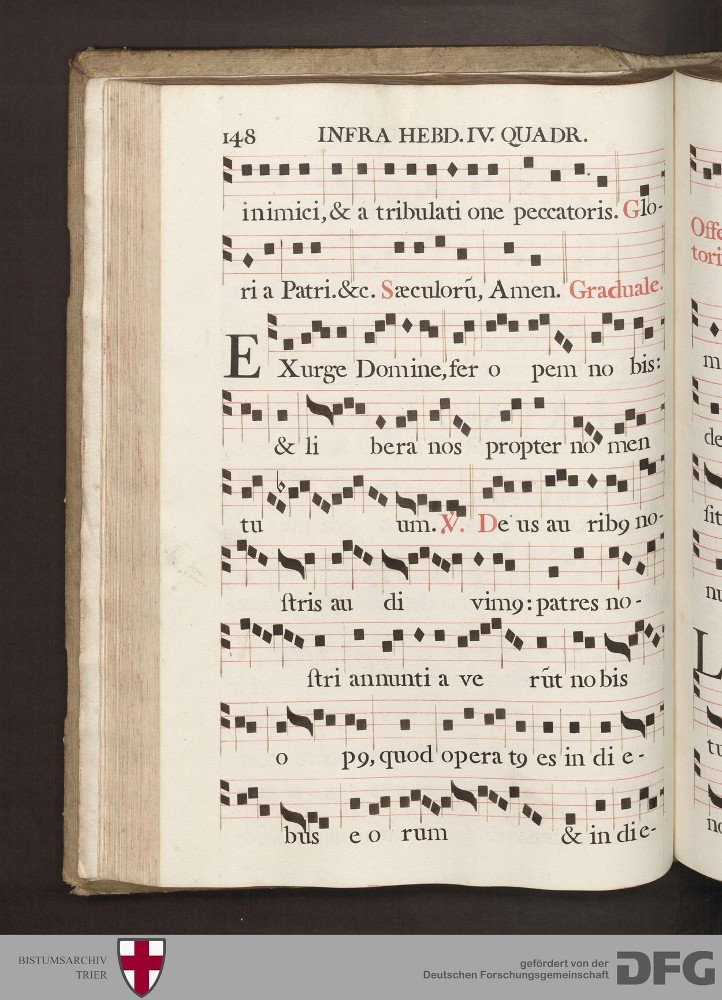 148 INFRA HEBD. IV. QUADR.
inimici, & a tribulati one peccatoris. Glo-
ri a Patri. &c. Sæculorū, Amen. Graduale.
EXurge Domine, fer o pem no bis:
& li bera nos propter no men
tu um. ℣. De us au ribꝰ no-
ſtris au di vimꝰ: patres no-
ſtri annunti a ve rūt no bis
o pꝰ, quod opera tꝰ es in di e-
bus e o rum & in di e-
Offe
tori
m
de
ſit
nu
L
tu
BISTUMSARCHIV
TRIER
gefördert von der
Deutschen Forschungsgemeinschaft
DFG